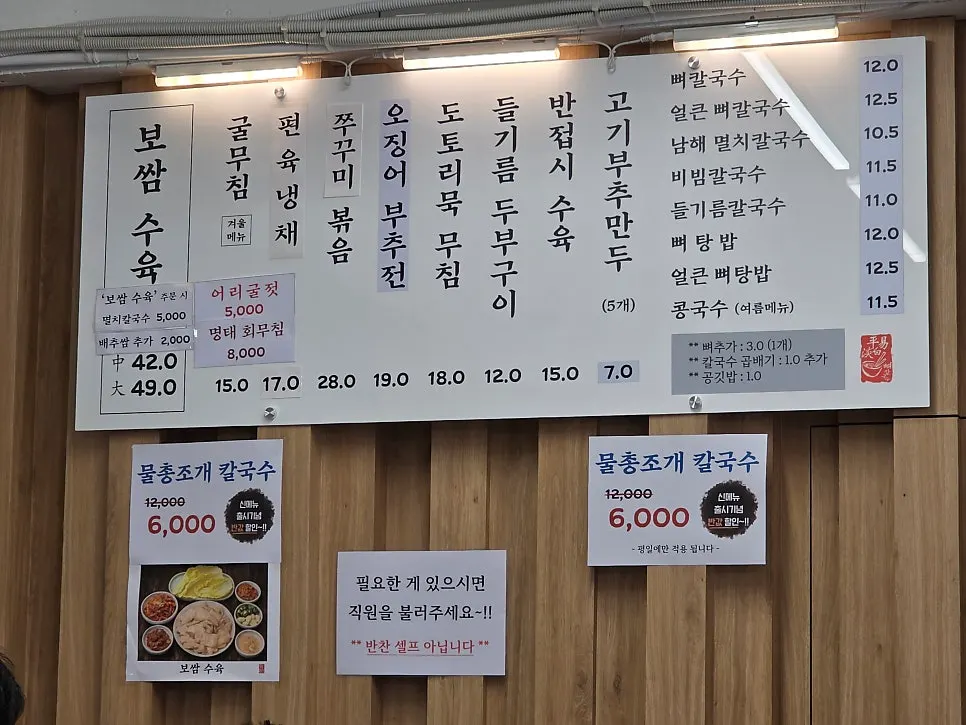 보쌈 수육
'보쌈 수육' 주문 시
멸치칼국수 5,000
배추쌈 추가 2,000
中 42.0
大 49.0
굴무침
겨울
메뉴
15.0
어리굴젓
5,000
명태 회무침
8,000
편육냉채
17.0
쭈꾸미 볶음
28.0
오징어 부추전
19.0
도토리묵 무침
18.0
들기름 두부구이
12.0
반접시 수육
15.0
고기부추만두
(5개)
7.0
뼈칼국수 12.0
얼큰 뼈칼국수 12.5
남해 멸치칼국수 10.5
비빔칼국수 11.5
들기름칼국수 11.0
뼈 탕 밥 12.0
얼큰 뼈탕밥 12.5
콩국수 (여름메뉴) 11.5
** 뼈추가 : 3.0 (1개)
** 칼국수 곱배기 : 1.0 추가
** 공깃밥 : 1.0
물총조개 칼국수
12,000
6,000
신메뉴
출시기념
반값 할인~!!
보쌈 수육
필요한 게 있으시면
직원을 불러주세요~!!
** 반찬 셀프 아닙니다 **
물총조개 칼국수
12,000
6,000
신메뉴
출시기념
반값 할인~!!
- 평일에만 적용 됩니다 -